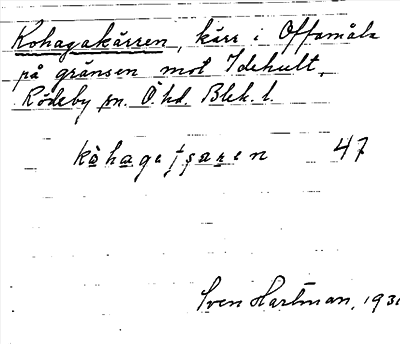 Kohagakärren, kärr i Offamåla
på gränsen mot Idehult,
Rödeby sn. Ö. hd. Blek. l.
kòhagatʃæren 47
Sven Hartman, 193